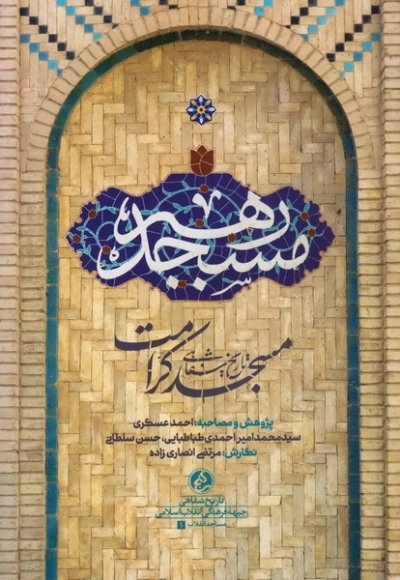 مسجد رهبر
تاریخ شفاهی
مسجد کرامت
پژوهش و مصاحبه: احمد عسکری
سیدمحمدامیر احمدی طباطبایی، حسن سلطانی
نگارش: مرتضی انصاری زاده
تاریخ شفاهی
جبهه فرهنگی انقلاب اسلامی
مساجد انقلاب ۱